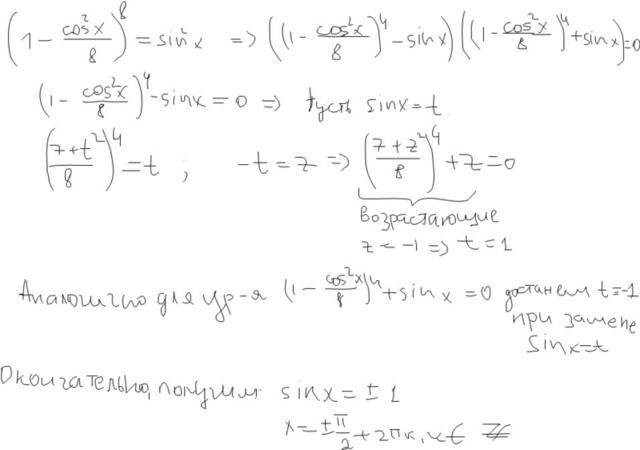 (1 - cos²x/8)⁸ = sin²x => ((1 - cos²x/8)⁴ - sinx)((1 - cos²x/8)⁴ + sinx) = 0
(1 - cos²x/8)⁴ - sinx = 0 => Пусть sinx = t
((7+t²)/8)⁴ = t ; -t = z => ((7+z²)/8)⁴ + z = 0
возрастающие
z = -1 => t = 1
Аналогично для ур-я (1 - cos²x/8)⁴ + sinx = 0 достанем t = -1
при замене
sinx = t
Окончательно, получим sinx = ± 1
x = ± π/2 + 2πк, к ∈ Z